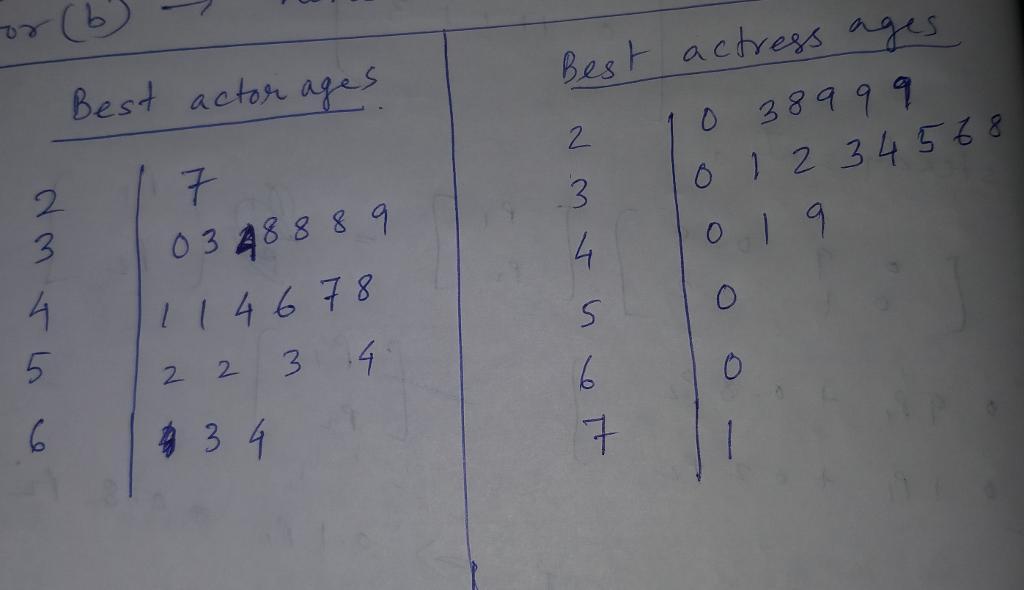 or (b) →
Best actor ages.
2 | 7
3 | 0 3 4 8 8 8 9
4 | 1 1 4 6 7 8
5 | 2 2 3 4
6 | 3 4
Best actress ages
2 | 0 3 8 9 9 9
3 | 0 1 2 3 4 5 6 8
4 | 0 1 9
5 | 0
6 | 0
7 | 1